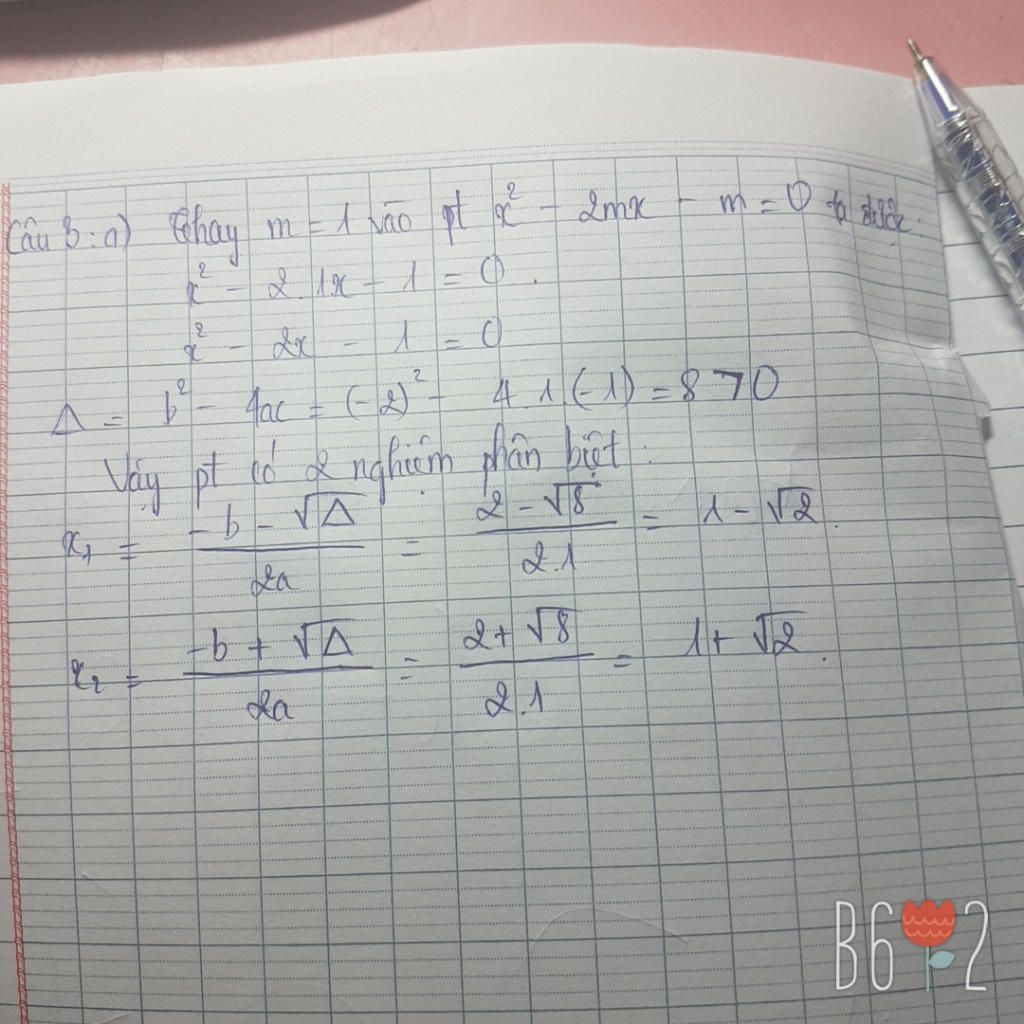 Câu 3: a) Thay m = 1 vào pt x² - 2mx - m = 0 ta được
x² - 2.1x - 1 = 0.
x² - 2x - 1 = 0
Δ = b² - 4ac = (-2)² - 4.1(-1) = 8 > 0
Vậy pt có 2 nghiệm phân biệt:
x₁ = (-b - √Δ)/(2a) = (2 - √8)/(2.1) = 1 - √2.
x₂ = (-b + √Δ)/(2a) = (2 + √8)/(2.1) = 1 + √2.
B6 2